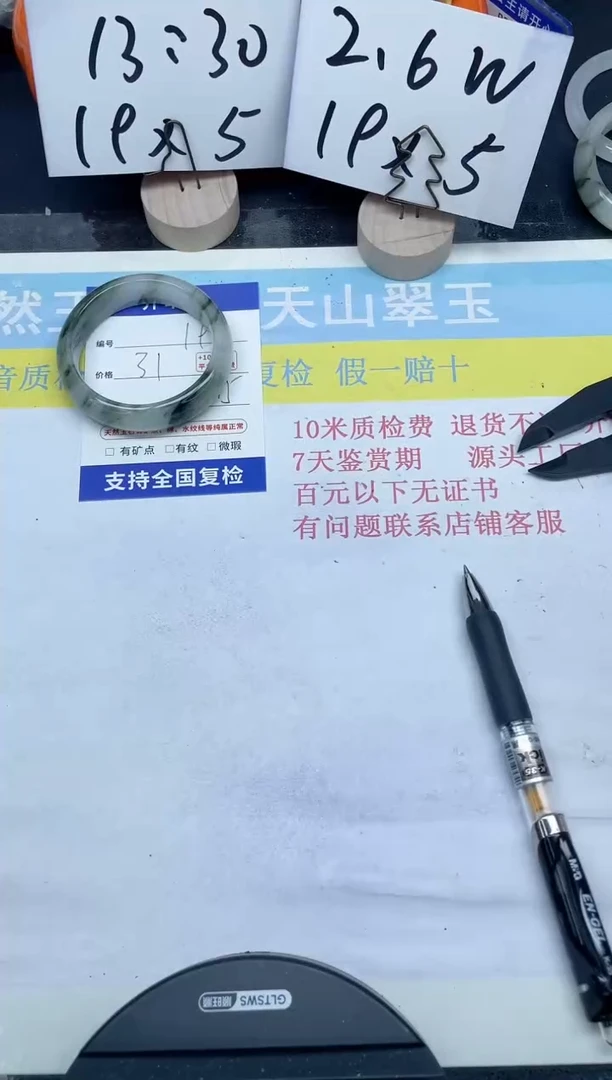 13:30
19×5
2.6W
19×5
天山翠玉
编号 19
价格 31
复检 假一赔十
水纹线等纯属正常
□有矿点 □有纹 □微瑕
支持全国复检
10米质检费 退货不
7天鉴赏期 源头工厂
百元以下无证书
有问题联系店铺客服
M&G
GLTSWS